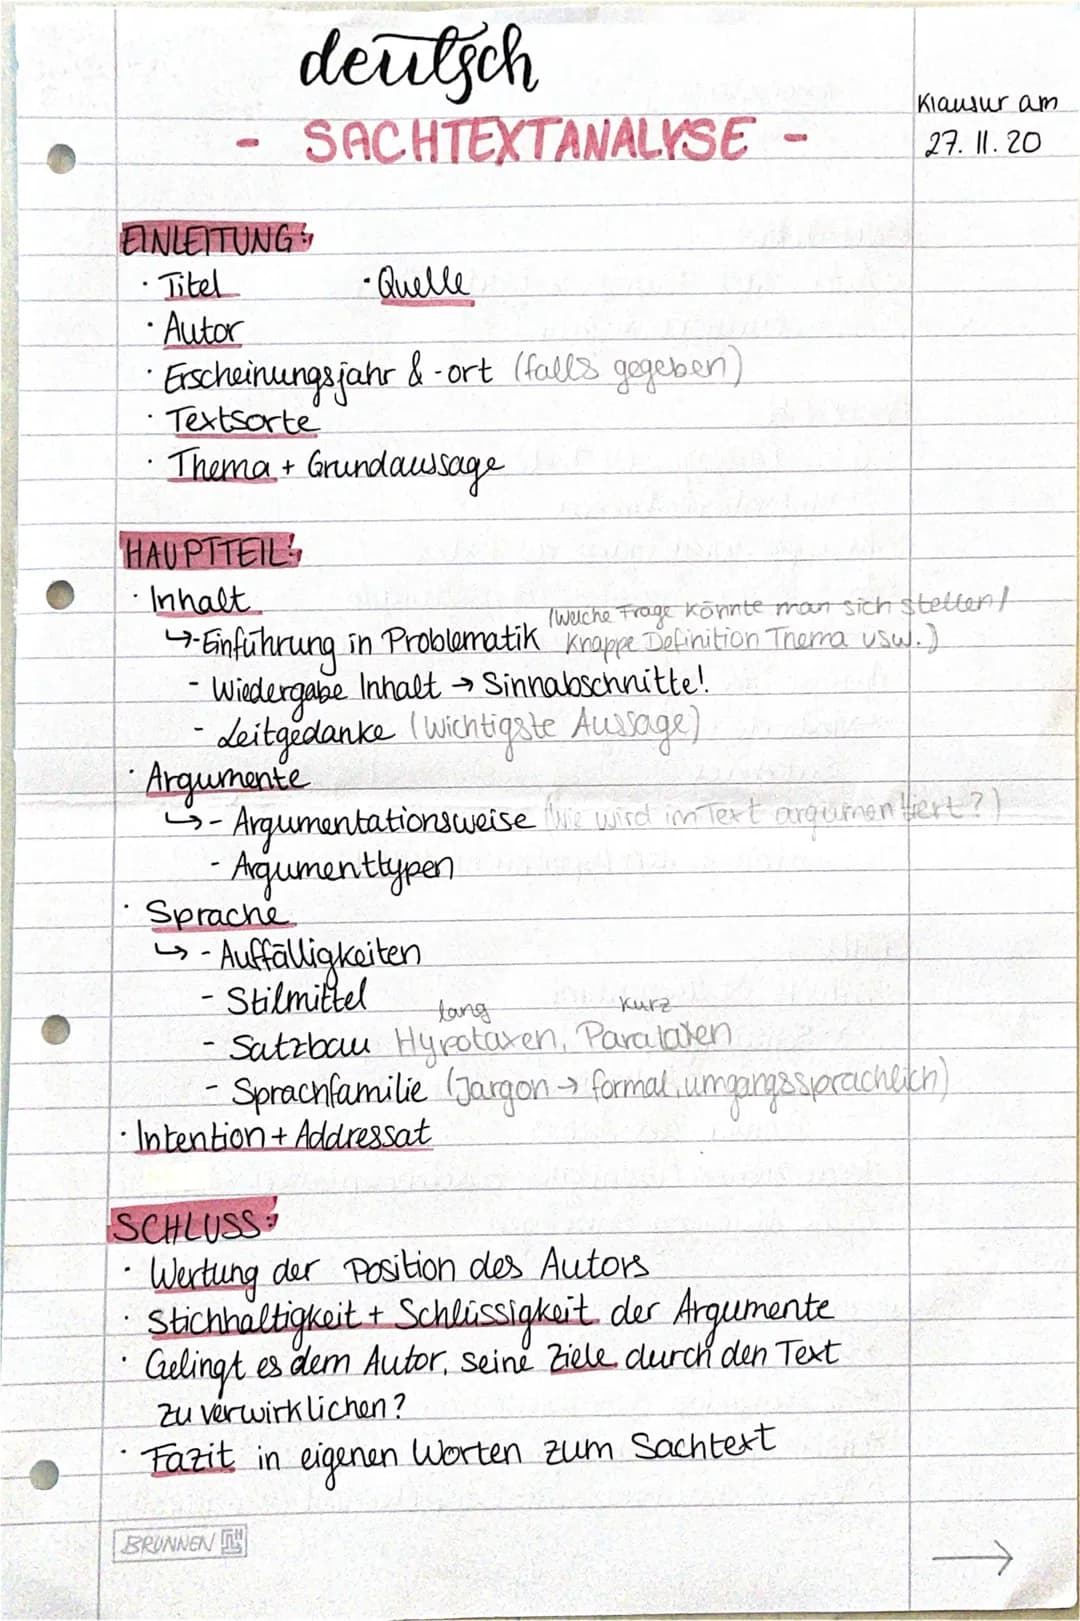 deutsch
- SACHTEXTANALYSE -
Klausur am
27. 11. 20
EINLEITUNG:
· Titel · Quelle
· Autor
· Erscheinungsjahr & -ort (falls gegeben)
· Textsorte
· Thema + Grundaussage
HAUPTTEIL:
· Inhalt
(Welche Frage könnte man sich stellen/
↳ - Einführung in Problematik Knappe Definition Thema usw.)
- Wiedergabe Inhalt → Sinnabschnitte!
- Leitgedanke (Wichtigste Aussage)
· Argumente
↳ - Argumentationsweise (Wie wird im Text argumentiert?)
- Argumenttypen
· Sprache
↳ - Auffälligkeiten
- Stilmittel
lang kurz
- Satzbau Hypotaxen, Parataxen
- Sprachfamilie (Jargon → formal, umgangssprachlich)
· Intention + Addressat
SCHLUSS:
· Wertung der Position des Autors
· Stichhaltigkeit + Schlüssigkeit der Argumente
· Gelingt es dem Autor, seine Ziele durch den Text
zu verwirklichen?
· Fazit in eigenen Worten zum Sachtext
BRUNNEN
→